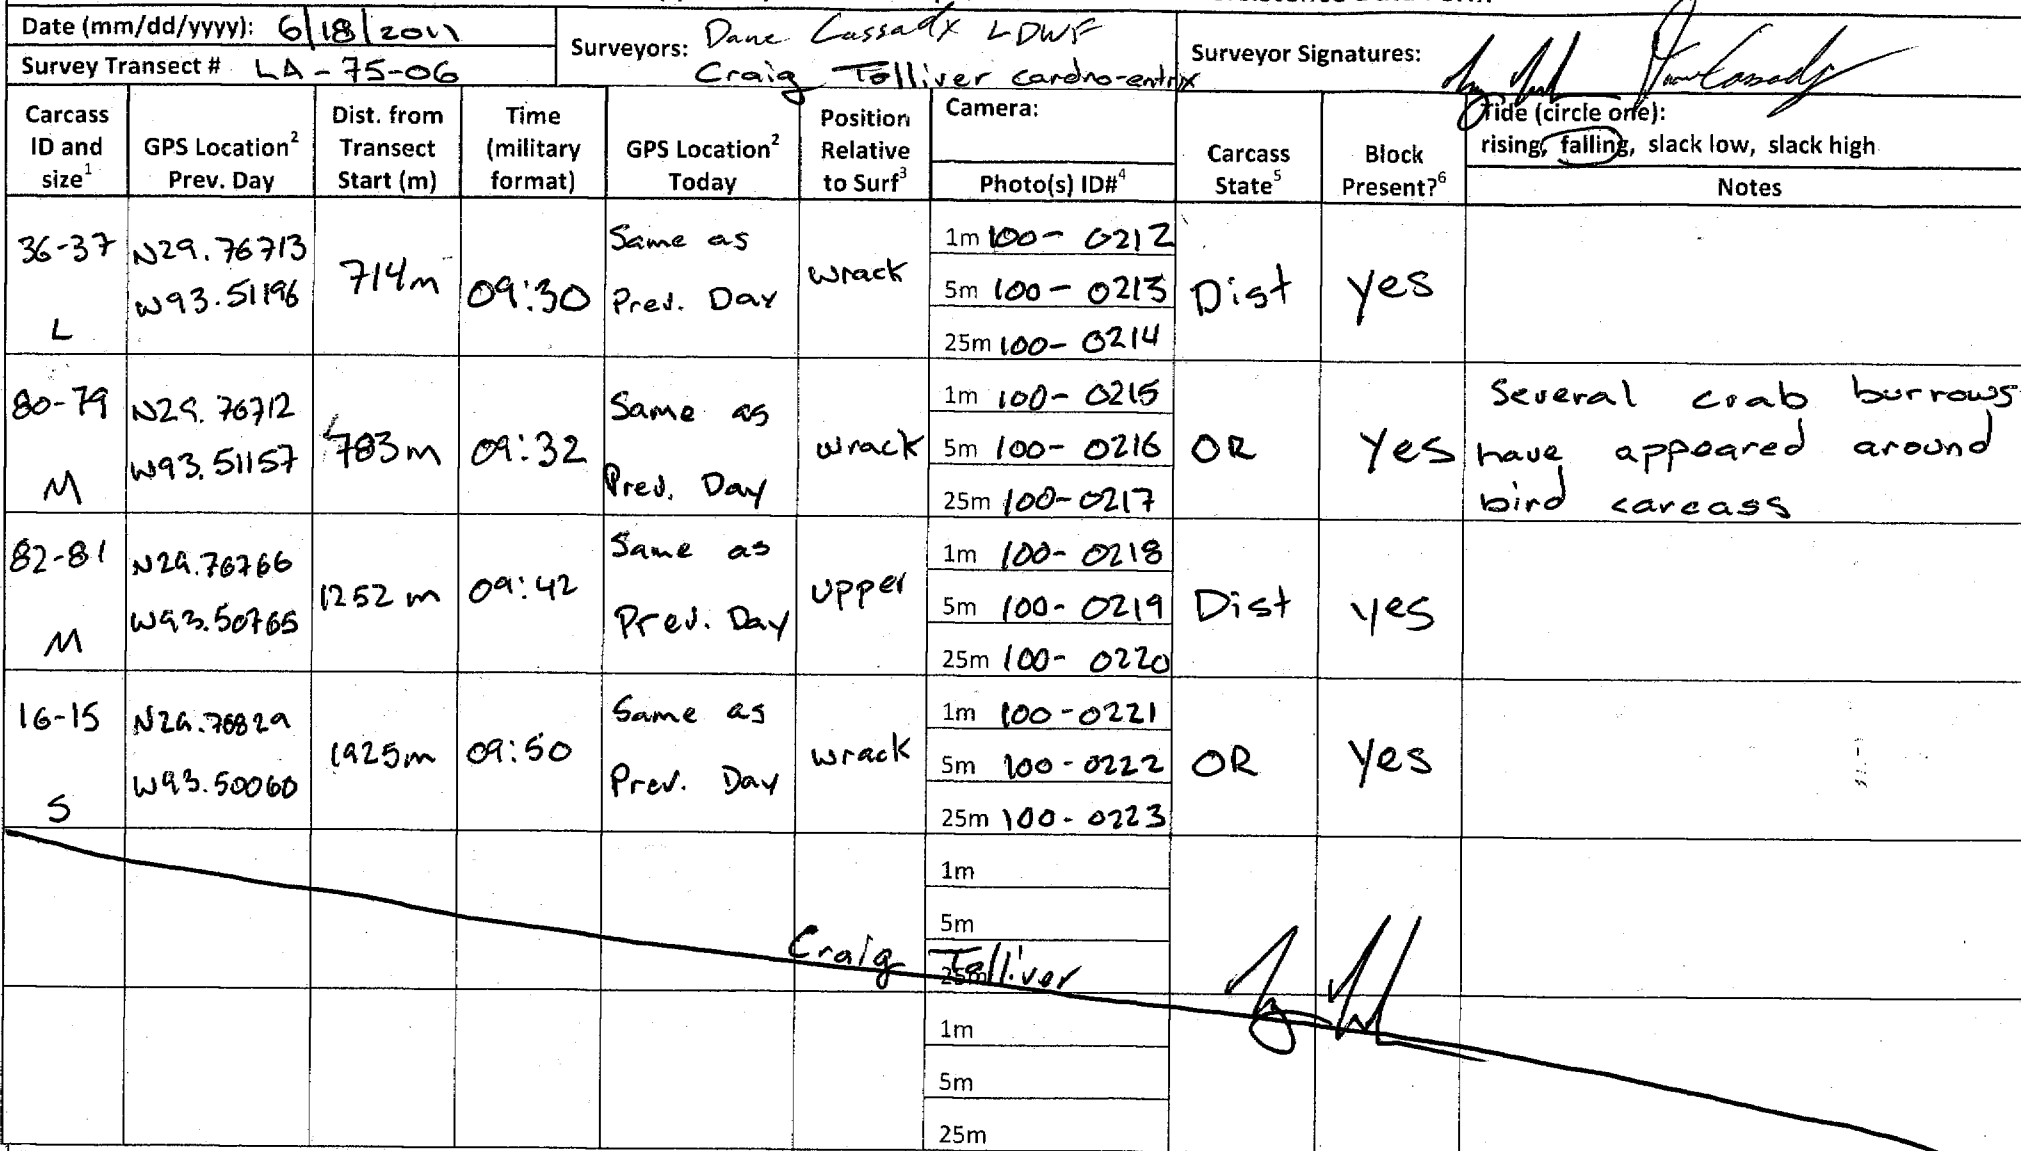 Date (mm/dd/yyyy): 6/18/2011
Survey Transect # LA-75-06
Surveyors: Dane Cassady LDWF
Craig Tolliver cardno-entrix
Surveyor Signatures:
Carcass ID and size1
GPS Location2 Prev. Day
Dist. from Transect Start (m)
Time (military format)
GPS Location2 Today
Position Relative to Surf3
Camera:
Photo(s) ID#4
Carcass State5
Block Present?6
Tide (circle one):
rising, falling, slack low, slack high
Notes
36-37
L
N29.76713
W93.51196
714m
09:30
Same as
Prev. Day
wrack
1m 100-0212
5m 100-0213
25m 100-0214
Dist
yes
80-79
M
N29.76712
W93.51157
783m
09:32
Same as
Prev. Day
wrack
1m 100-0215
5m 100-0216
25m 100-0217
OR
yes
Several crab burrows
have appeared around
bird carcass
82-81
M
N29.76766
W93.50765
1252m
09:42
Same as
Prev. Day
upper
1m 100-0218
5m 100-0219
25m 100-0220
Dist
yes
16-15
S
N29.76829
W93.50060
1925m
09:50
Same as
Prev. Day
wrack
1m 100-0221
5m 100-0222
25m 100-0223
OR
yes
1m
5m
25m
Craig Tolliver
1m
5m
25m